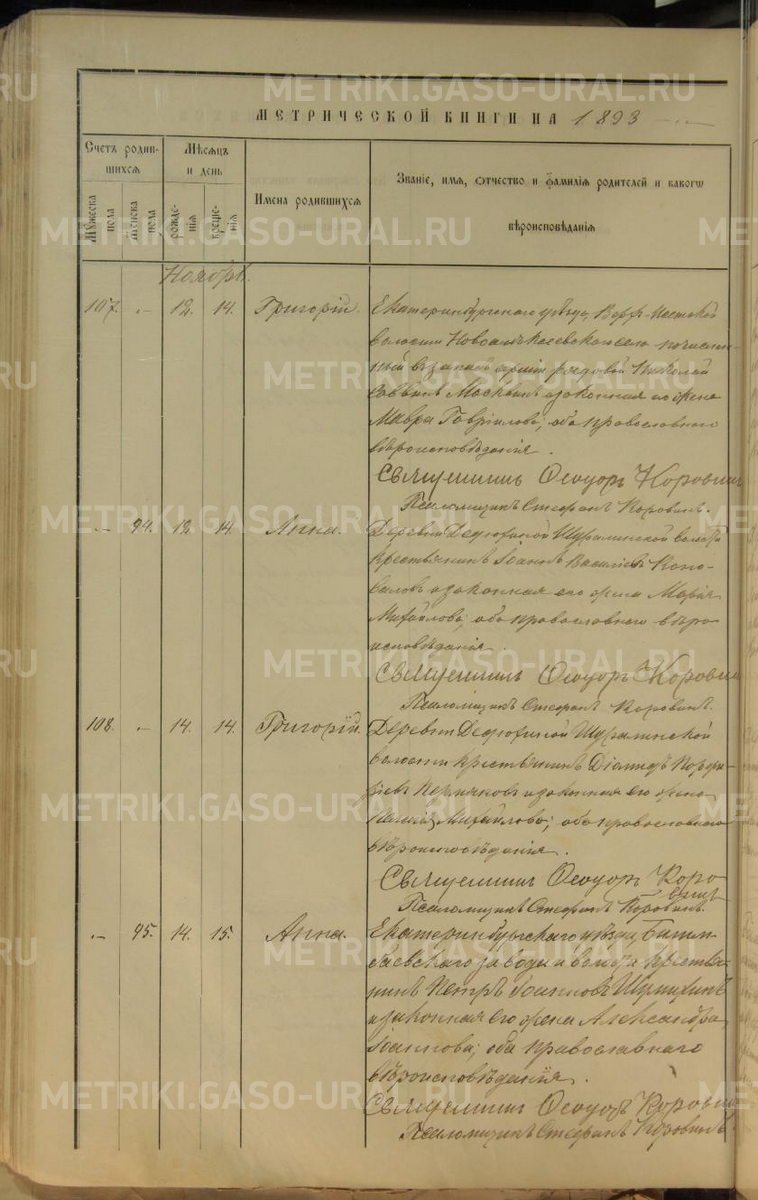 МЕТРИЧЕСКОЙ КНИГИ НА 1893
Счетъ родив-
шихсѧ
Мѣсѧцъ
и день
Имена родившихсѧ
Званіе, имѧ, ѻтчество и фамиліѧ родителей и какогѡ
вѣроисповѣданіѧ
Мужеска
пола
Женска
пола
рожде-
ніѧ
креще-
ніѧ
Ноябрь.
107. - 12. 14. Григорій.
Екатеринбургскаго уѣзда, Верхъ-
волости
запасъ арміи рядовой Николай
Саввинъ Москвинъ и законная его жена
Мавра Гавріилова; оба православнаго
вѣроисповѣданія.
Священникъ Ѳеодоръ Коровинъ
Псаломщикъ Стефанъ Коровинъ.
- 94. 12. 14. Анна.
Деревни Дедюхиной Шуралинской волости
крестьянинъ Іоаннъ Васильевъ Коно-
валовъ и законная его жена Марія
Михайлова; оба православнаго вѣро-
исповѣданія.
Священникъ Ѳеодоръ Коровинъ
Псаломщикъ Стефанъ Коровинъ.
108. - 14. 14. Григорій.
Деревни Дедюхиной Шуралинской
волости крестьянинъ Діомидъ
и законная его жена
Михайлова; оба православнаго
вѣроисповѣданія.
Священникъ Ѳеодоръ Коро-
винъ
Псаломщикъ Стефанъ Коровинъ.
- 95. 14. 15. Анна.
Екатеринбургскаго уѣзда, Билим-
баевскаго завода и волости крестья-
нинъ Петръ Іоанновъ
и законная его жена Александра
Іоаннова; оба православнаго
вѣроисповѣданія.
Священникъ Ѳеодоръ Коровинъ
Псаломщикъ Стефанъ Коровинъ.
METRIKI.GASO-URAL.RU